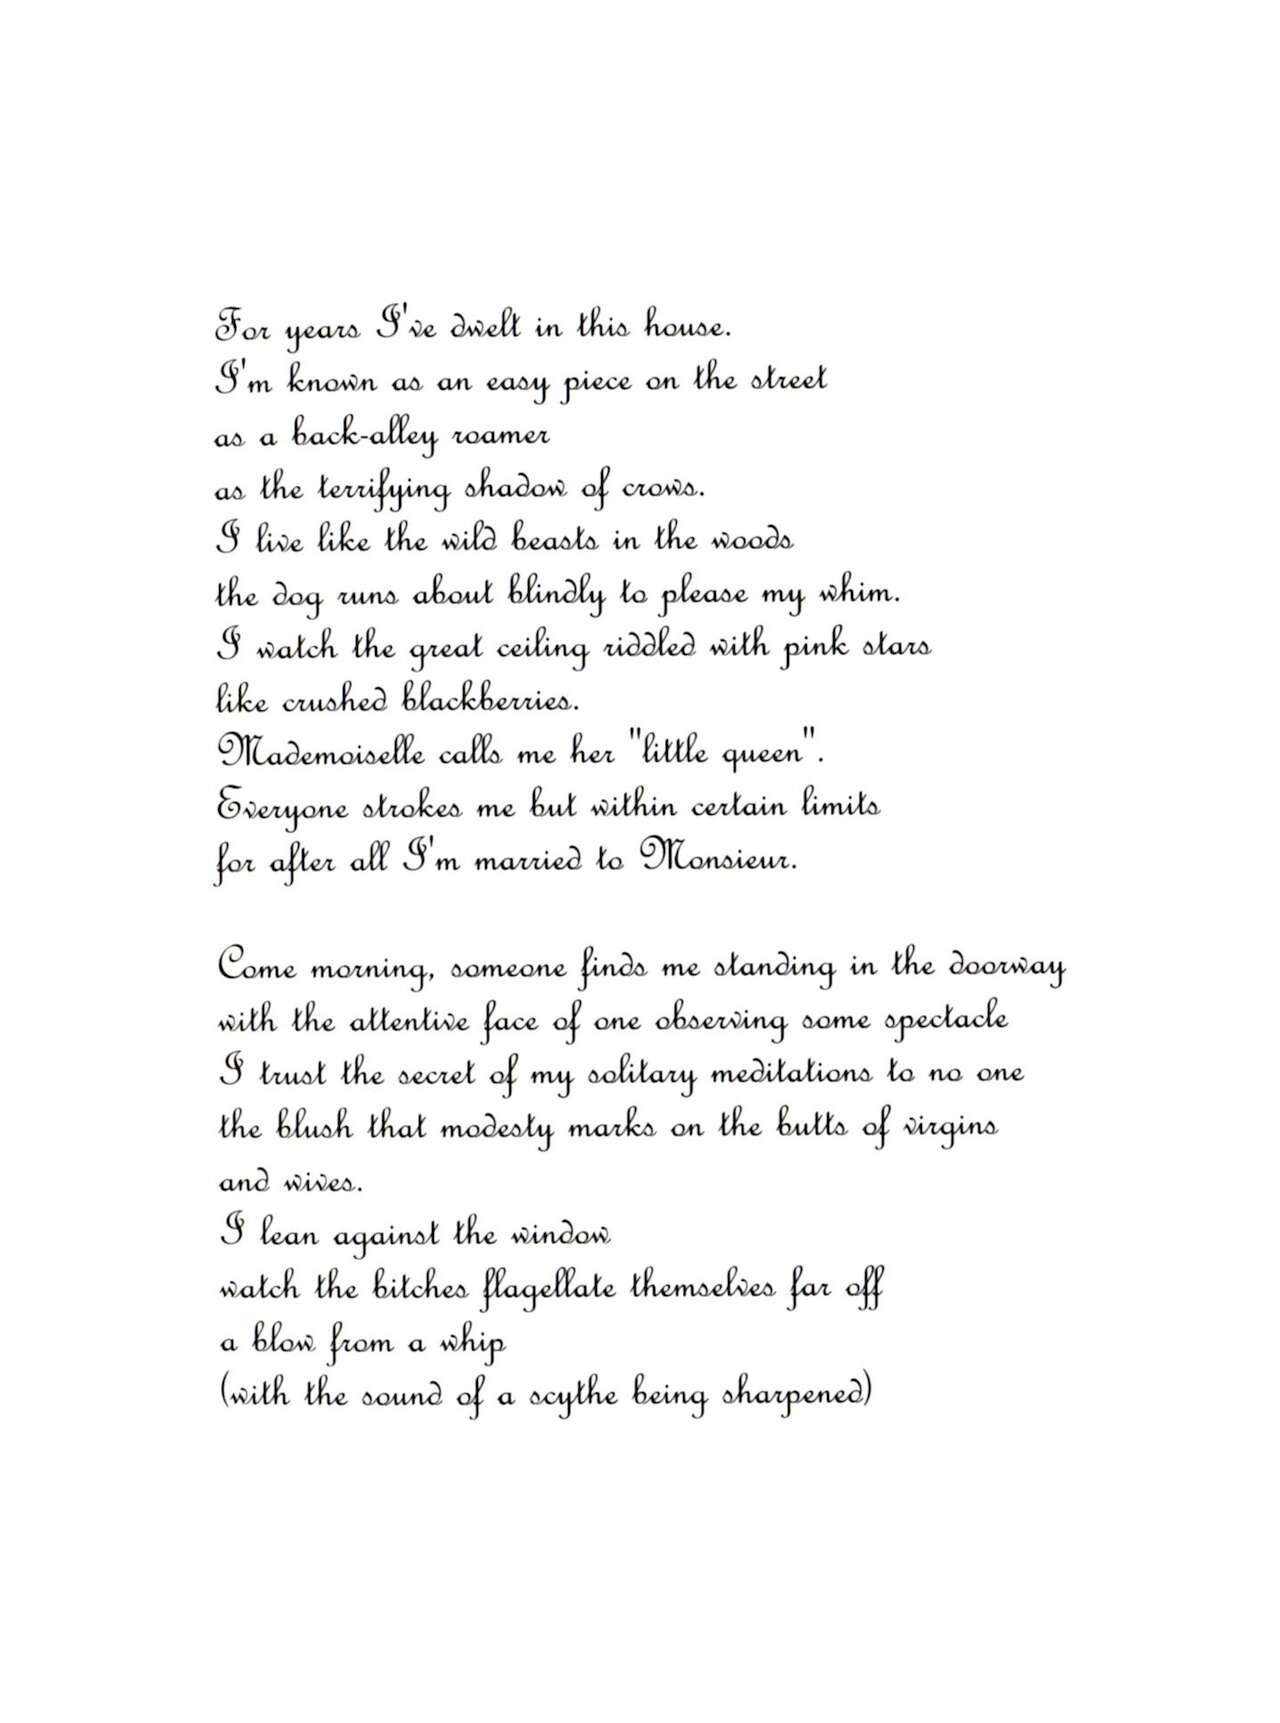 For years I've dwelt in this house.
I'm known as an easy piece on the street
as a back-alley roamer
as the terrifying shadow of crows.
I live like the wild beasts in the woods
the dog runs about blindly to please my whim.
I watch the great ceiling riddled with pink stars
like crushed blackberries.
Mademoiselle calls me her "little queen".
Everyone strokes me but within certain limits
for after all I'm married to Monsieur.

Come morning, someone finds me standing in the doorway
with the attentive face of one observing some spectacle
I trust the secret of my solitary meditations to no one
the blush that modesty marks on the butts of virgins
and wives.
I lean against the window
watch the bitches flagellate themselves far off
a blow from a whip
(with the sound of a scythe being sharpened)